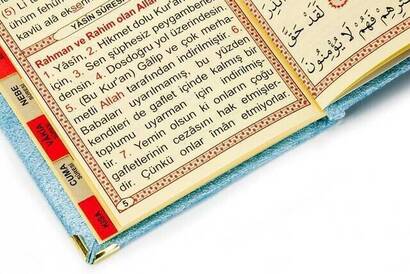 (5) Li
kavlu alâ eksе
YÂSÎN SÛRES
Rahman ve Rahim olan Alla
1. Yâsîn. 2. Hikmet dolu Kur'an
3. Sen şüphesiz peygamberle
densin. 4. Dosdoğru yol üzerindesin.
5. (Bu Kur'an) Gâlip ve çok merha-
metli Allah tarafından indirilmiştir. 6.
Babaları uyarılmamış, bu yüzden
kendileri de gaflet içinde kalmış bir
toplumu uyarman için indirilmiş-
tir. 7. Yemin olsun ki onların çoğu
gafletlerinin cezasını hak etmiştir-
dir. Çünkü onlar îmân etmiyorlar.
5
NEBE
SURESİ
VAKIA
CUMA
SURESİ
KISA
لَقَدْ حَقَّ
فَهُمْ لَا يُؤْمِنُونَ